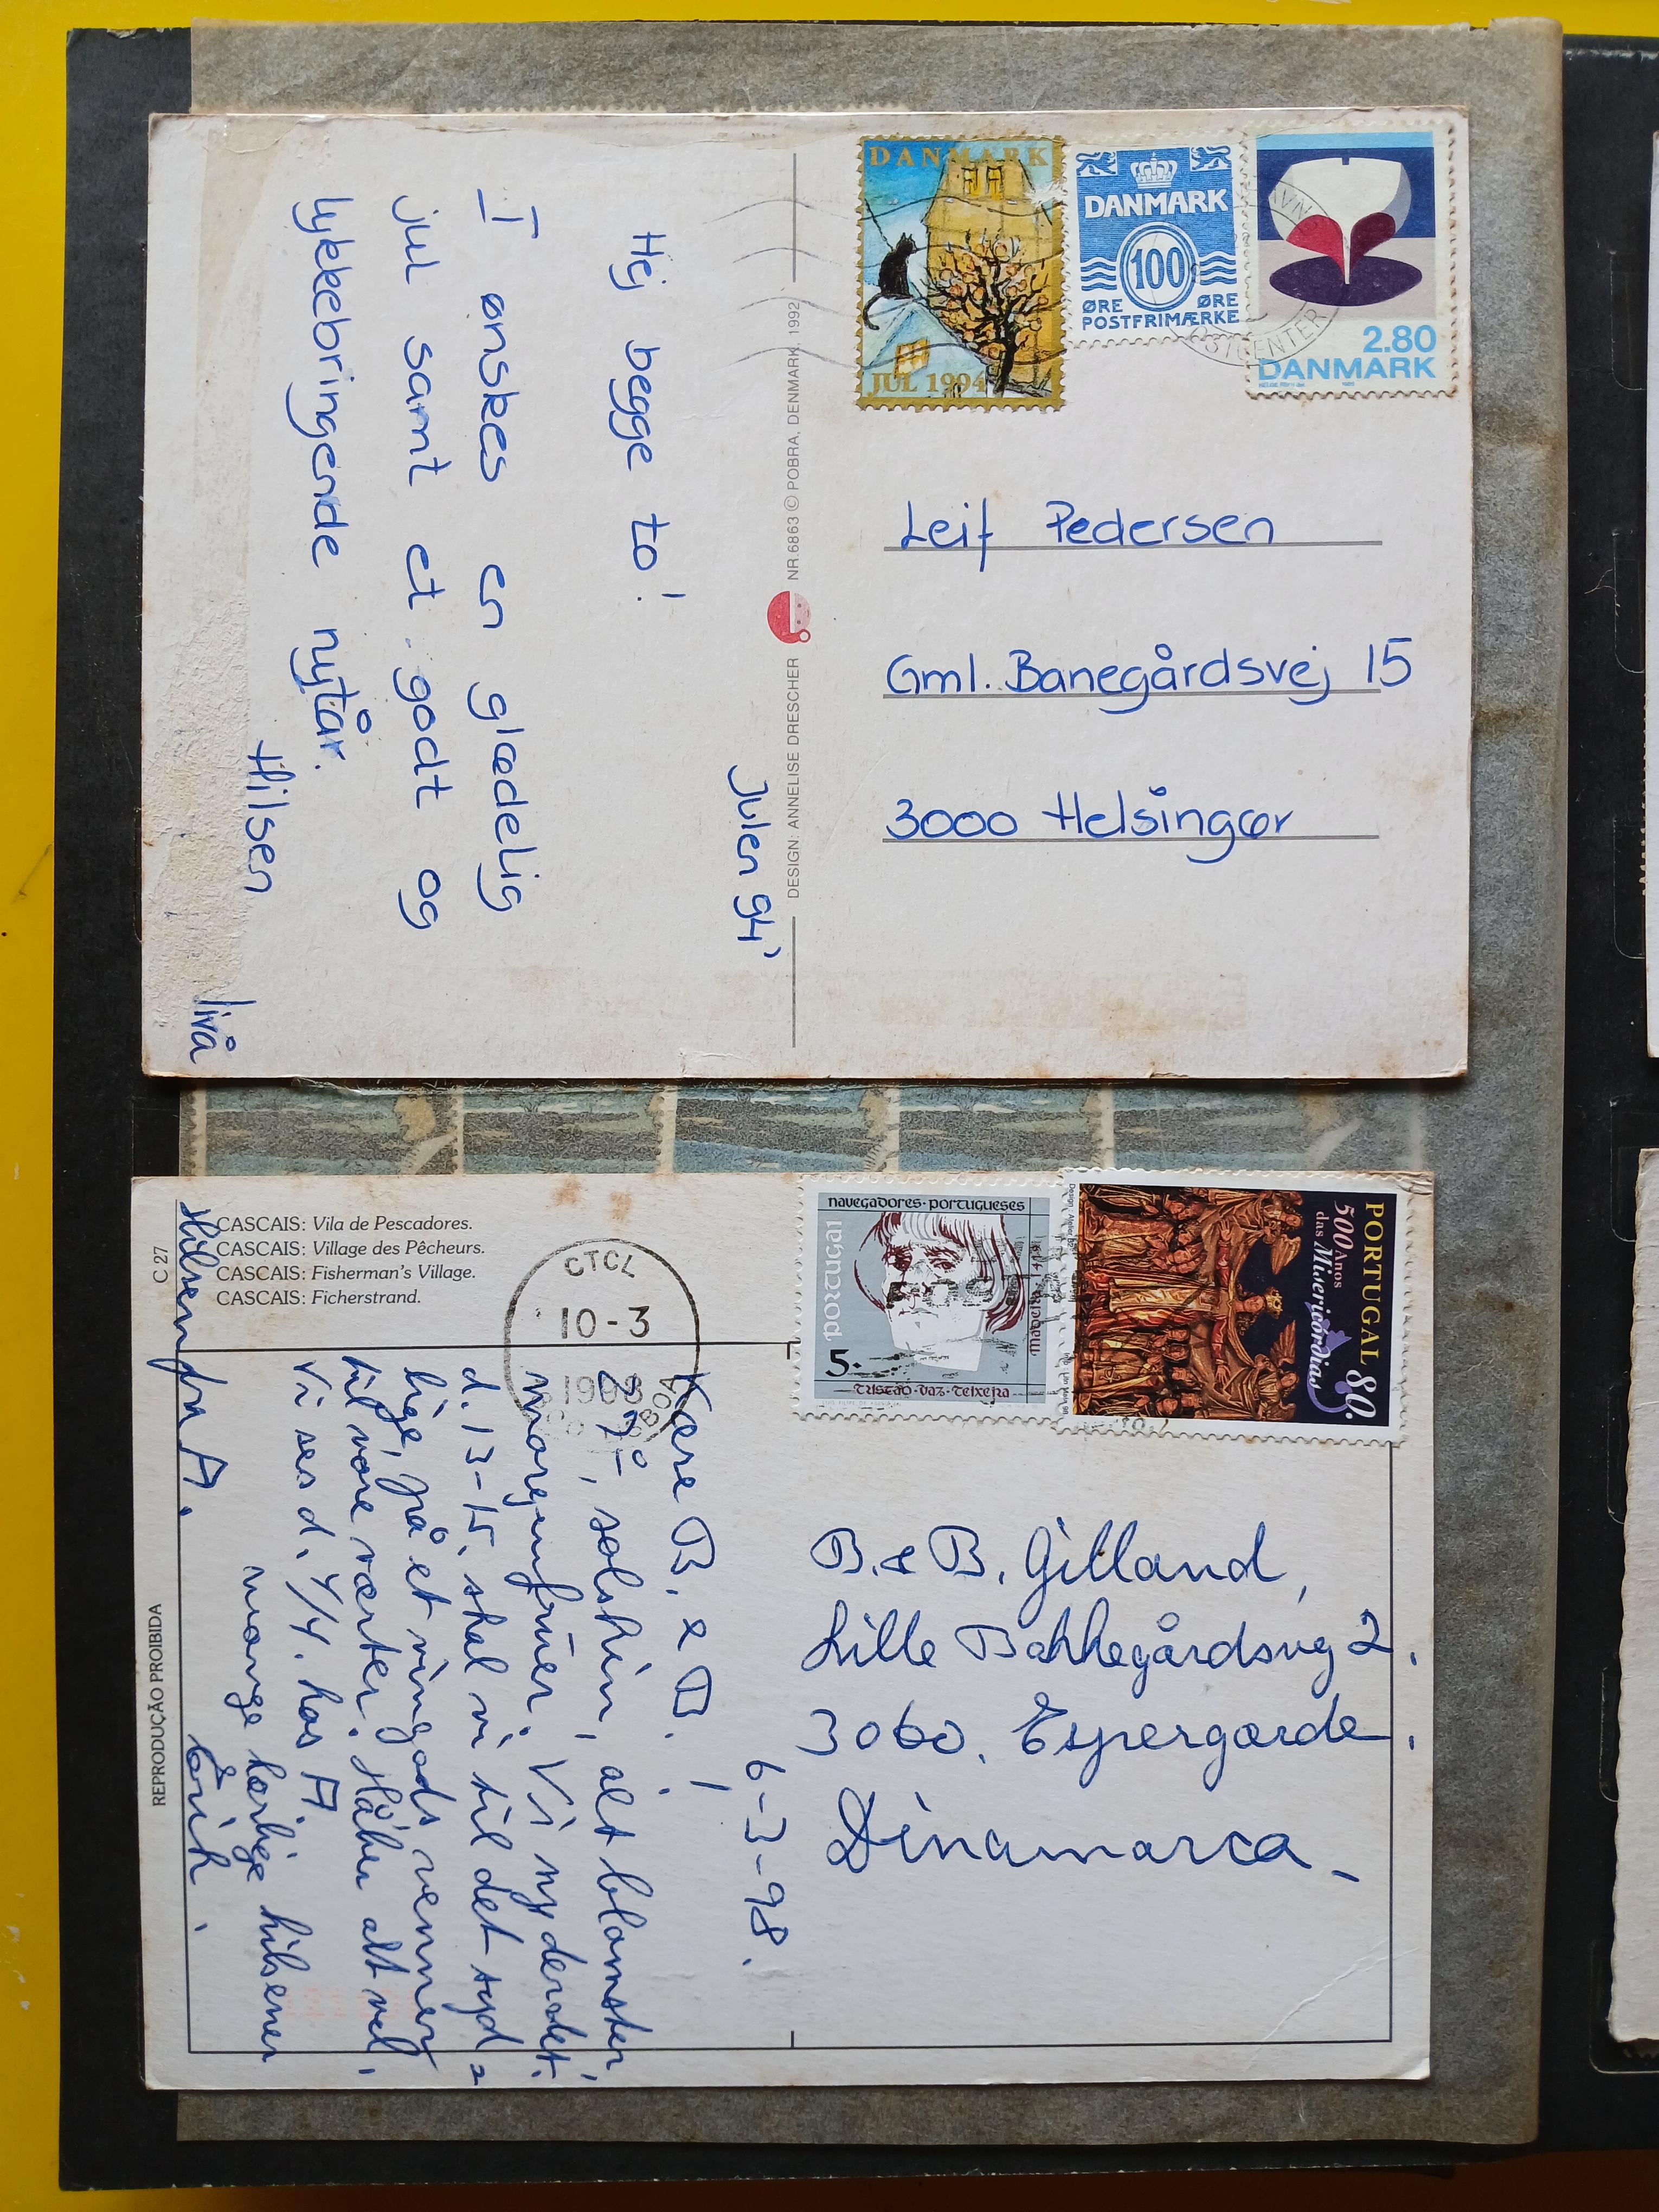 DANMARK
JUL 1994
DANMARK
100
ØRE ØRE
POSTFRIMÆRKE
2.80
DANMARK
POSTCENTER
Julen 94
Hej begge to!
I ønskes en glædelig
jul samt et godt og
lykkebringende nytår.
Hilsen
DESIGN: ANNELISE DRESCHER NR. 6863 © POBRA, DENMARK, 1992
Leif Pedersen
Gml. Banegårdsvej 15
3000 Helsingør
C 27
CASCAIS: Vila de Pescadores.
CASCAIS: Village des Pêcheurs.
CASCAIS: Fisherman's Village.
CASCAIS: Ficherstrand.
REPRODUÇÃO PROIBIDA
CTCL
10-3
navegadores·portugueses
portugal
madeira
5·
tristão·vaz·teixeira
PORTUGAL 80.
500 Anos
das Misericórdias
6-3-98.
Kære B. & B.!
27°, solskin, alt blomster,
morgenfruer. Vi nyder det.
d. 13-15. skal vi til det syd=
lige, på et vingods venner
til vore værter. Håber alt vel.
Vi ses d. 4/4. hos A.
mange kærlige hilsener
Erik.
Hilsen fra A.
B. & B. Gilland,
Lille Bakkegårdsvej 2.
3060. Espergærde.
Dinamarca.